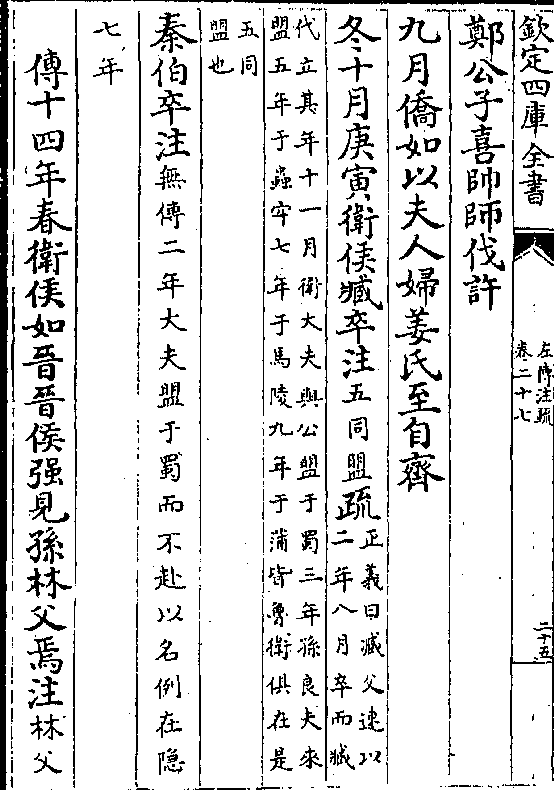 欽定四庫全書
左傳注疏
卷二十七
二十五
鄭公子喜帥師伐許
九月僑如以夫人婦姜氏至自齊
冬十月庚寅衛侯臧卒注五同盟疏正義曰臧父速以
二年八月卒而臧
代立其年十一月衛大夫與公盟于蜀三年孫良夫來
盟五年于蟲牢七年于馬陵九年于蒲皆魯衛俱在是
五同
盟也
秦伯卒注無傳二年大夫盟于蜀而不赴以名例在隐
七年
傳十四年春衛侯如晉晉侯强見孫林父焉注林父